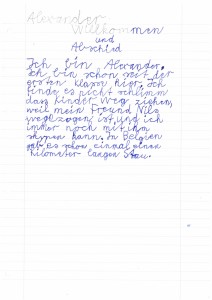 Alexander
Willkommen
und
Abschied
Ich bin Alexander.
Ich bin schon seit der
ersten Klasse hier. Ich
finde es nicht schlimm
dass Kinder weg ziehen,
weil mein Freund Nils
weggezogen ist und ich
immer noch mit ihm
kann. In Belgien
gab es schon einmal einen
kilometer langen Stau.